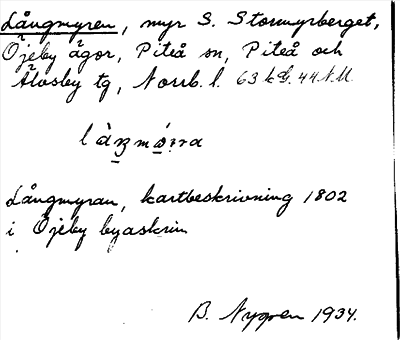 Långmyren, myr S. Stormyrberget,
Öjeby ägor, Piteå sn, Piteå och
Älvsby tg, Norrb. l. 63 k G. 44 N.V.
Långmyran, kartbeskrivning 1802
i Öjeby byaskrin
B. Nygren 1934.